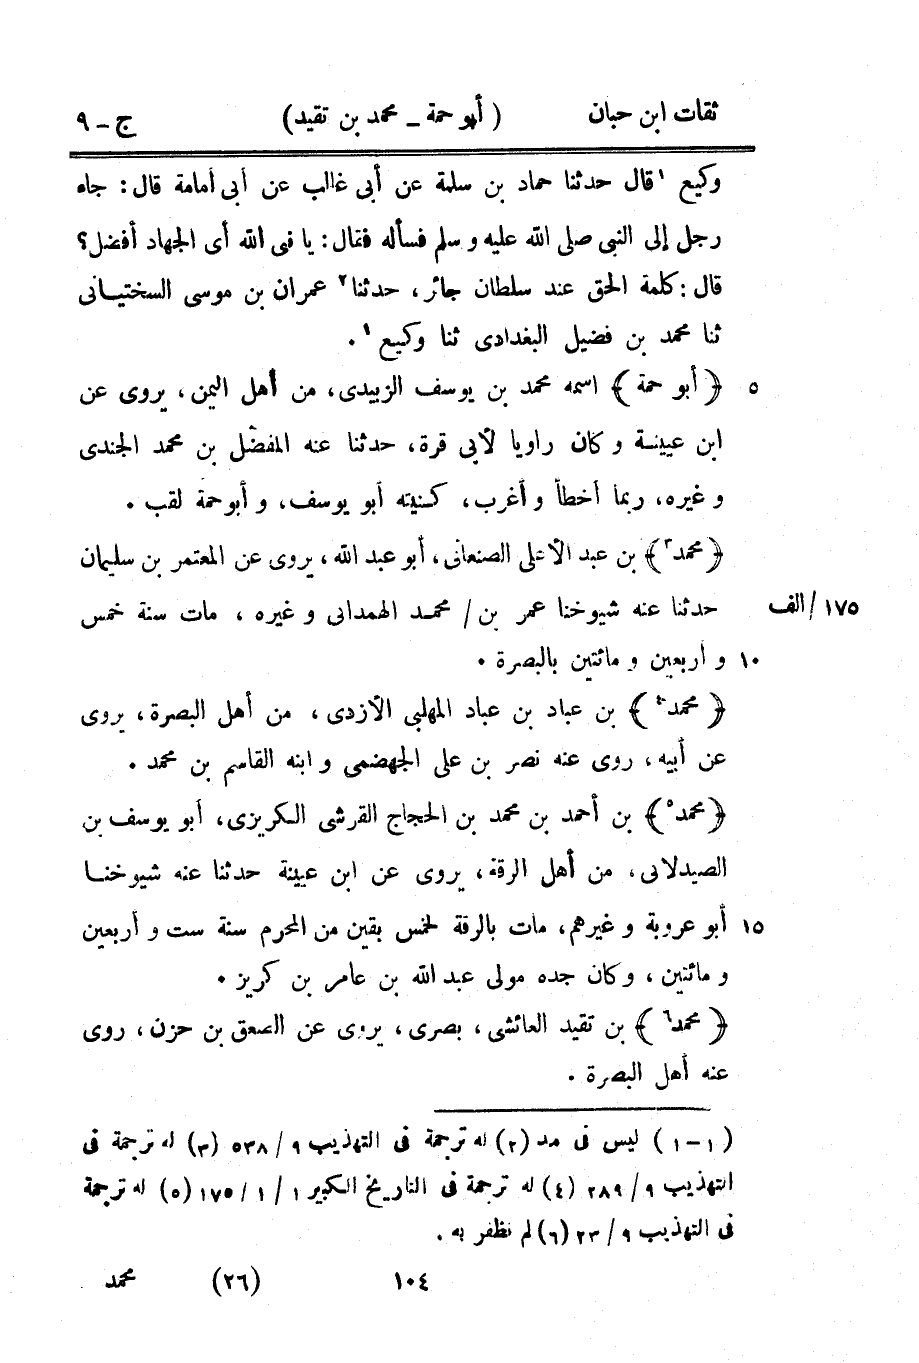 ثقات ابن حبان (أبو حمة - محمد بن تقيد) ج - ٩
وكيع ١ قال حدثنا حماد بن سلمة عن أبى غالب عن أبى أمامة قال: جاء
رجل إلى النبى صلى الله عليه و سلم فسأله فقال: يا نبى الله أى الجهاد أفضل؟
قال: كلمة الحق عند سلطان جائر، حدثنا ٢ عمران بن موسى السختيانى
ثنا محمد بن فضيل البغدادى ثنا وكيع ١ .
٥ ﴿أبو حمة﴾ اسمه محمد بن يوسف الزبيدى، من أهل اليمن، يروى عن
ابن عيينة و كان راويا لأبى قرة، حدثنا عنه المفضّل بن محمد الجندى
و غيره، ربما أخطأ و أغرب، كنيته أبو يوسف، و أبو حمة لقب .
﴿محمد ٣﴾ بن عبد الأعلى الصنعانى، أبو عبد الله، يروى عن المعتمر بن سليمان
١٧٥ / الف حدثنا عنه شيوخنا عمر بن / محمد الهمدانى و غيره ، مات سنة خمس
١٠ و أربعين و مائتين بالبصرة .
﴿محمد ٤﴾ بن عباد بن عباد المهلبى الأزدى، من أهل البصرة، يروى
عن أبيه، روى عنه نصر بن على الجهضمى و ابنه القاسم بن محمد .
﴿محمد ٥﴾ بن أحمد بن محمد بن الحجاج القرشى الكريزى، أبو يوسف بن
الصيدلانى، من أهل الرقة، يروى عن ابن عيينة حدثنا عنه شيوخنا
١٥ أبو عروبة و غيرهم، مات بالرقة لخمس بقين من المحرم سنة ست و أربعين
و مائتين، وكان جده مولى عبد الله بن عامر بن كريز .
﴿محمد ٦﴾ بن تقيد العائشى، بصرى، يروى عن الصعق بن حزن، روى
عنه أهل البصرة .
(١-١) ليس فى مد (٢) له ترجمة فى التهذيب ٩ / ٥٣٨ (٣) له ترجمة فى
التهذيب ٩ / ٢٨٩ (٤) له ترجمة فى التاريخ الكبير ١ / ١ / ١٧٥ (٥) له ترجمة
فى التهذيب ٩ / ٢٣ (٦) لم نظفر به .
١٠٤ (٢٦) محمد